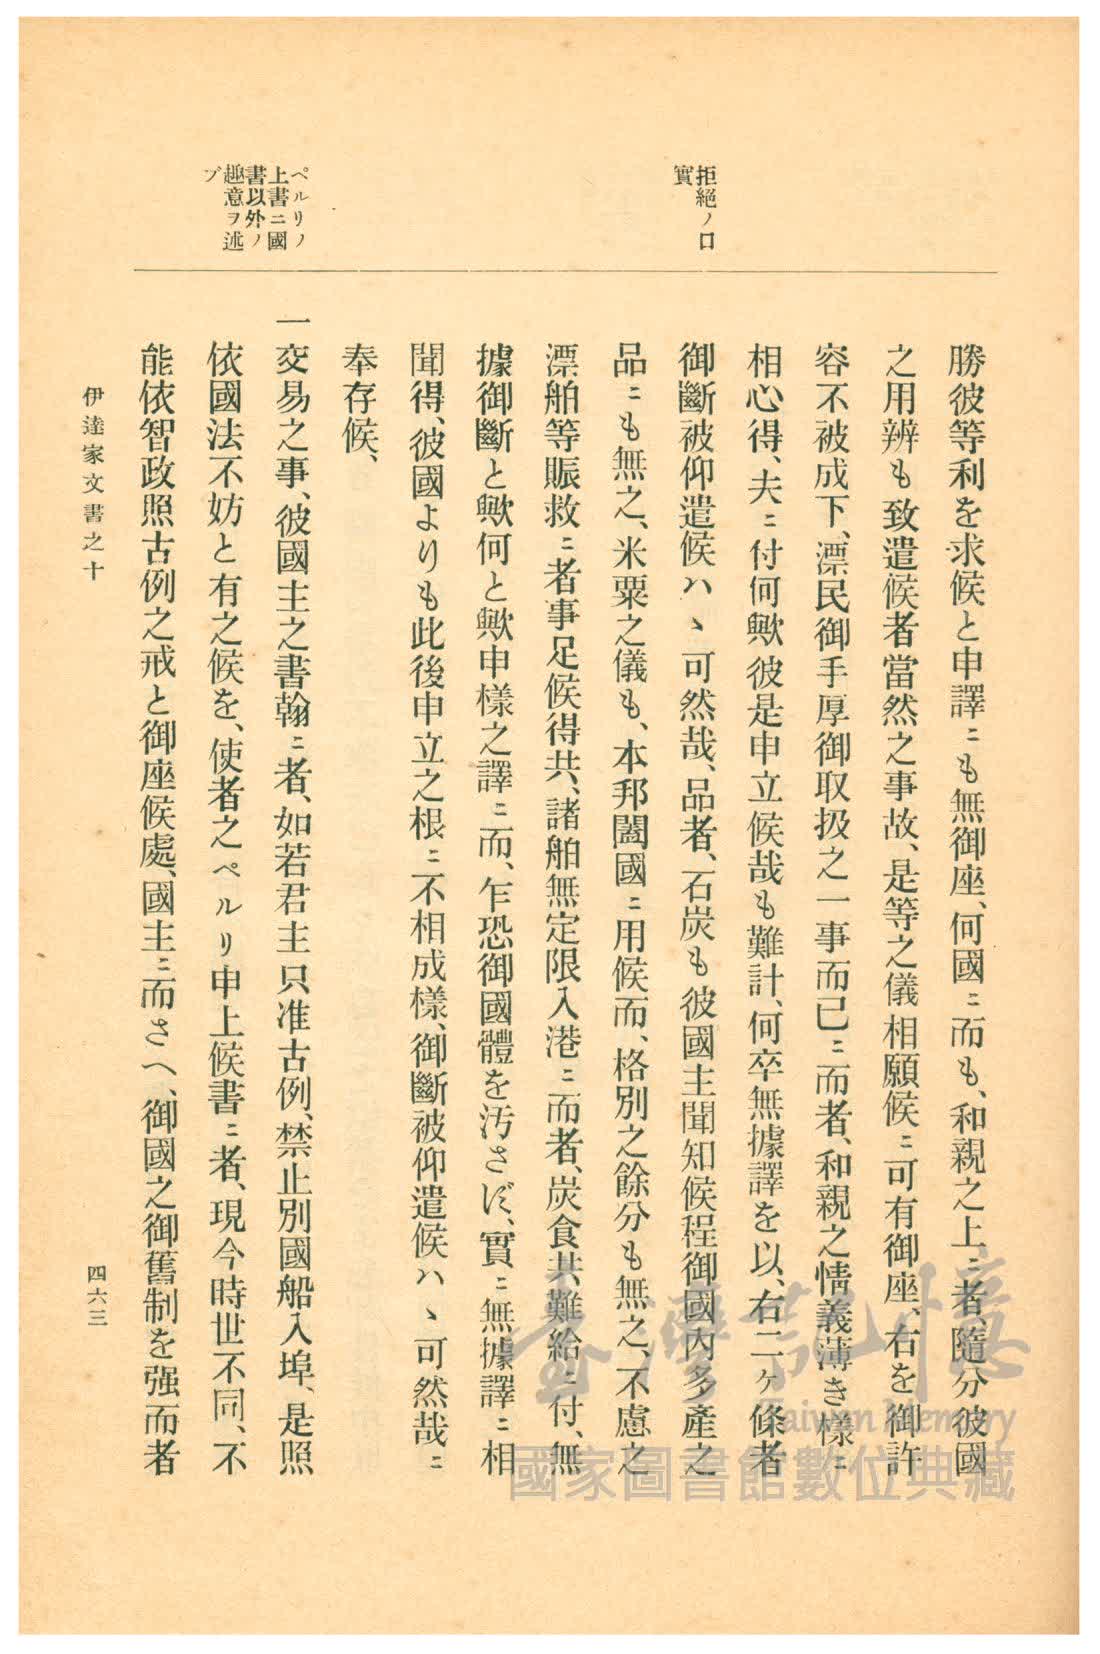 拒絕ノ口
實
ペルリノ
上書ニ國
書以外ノ
趣意ヲ述
ブ
勝彼等利を求候と申譯ニも無御座、何國ニ而も、和親之上ニ者、隨分彼國
之用辨も致遣候者當然之事故、是等之儀相願候ニ可有御座、右を御許
容不被成下、漂民御手厚御取扱之一事而已ニ而者、和親之情義薄き樣ニ
相心得、夫ニ付何歟彼是申立候哉も難計、何卒無據譯を以、右二ヶ條者
御斷被仰遣候ハヽ可然哉、品者、石炭も彼國主聞知候程御國內多產之
品ニも無之、米粟之儀も、本邦闔國ニ用候而、格別之餘分も無之、不慮之
漂舶等賑救ニ者事足候得共、諸舶無定限入港ニ而者、炭食共難給ニ付、無
據御斷と歟何と歟申樣之譯ニ而、乍恐御國體を汚さば、實ニ無據譯ニ相
聞得、彼國よりも此後申立之根ニ不相成樣、御斷被仰遣候ハヽ可然哉ニ
奉存候、
一交易之事、彼國主之書翰ニ者、如若君主只准古例、禁止別國船入埠、是照
依國法不妨と有之候を、使者之ペルリ申上候書ニ者、現今時世不同、不
能依智政照古例之戒と御座候處、國主ニ而さへ、御國之御舊制を强而者
伊達家文書之十
四六三
臺灣記憶
Taiwan Memory
國家圖書館數位典藏